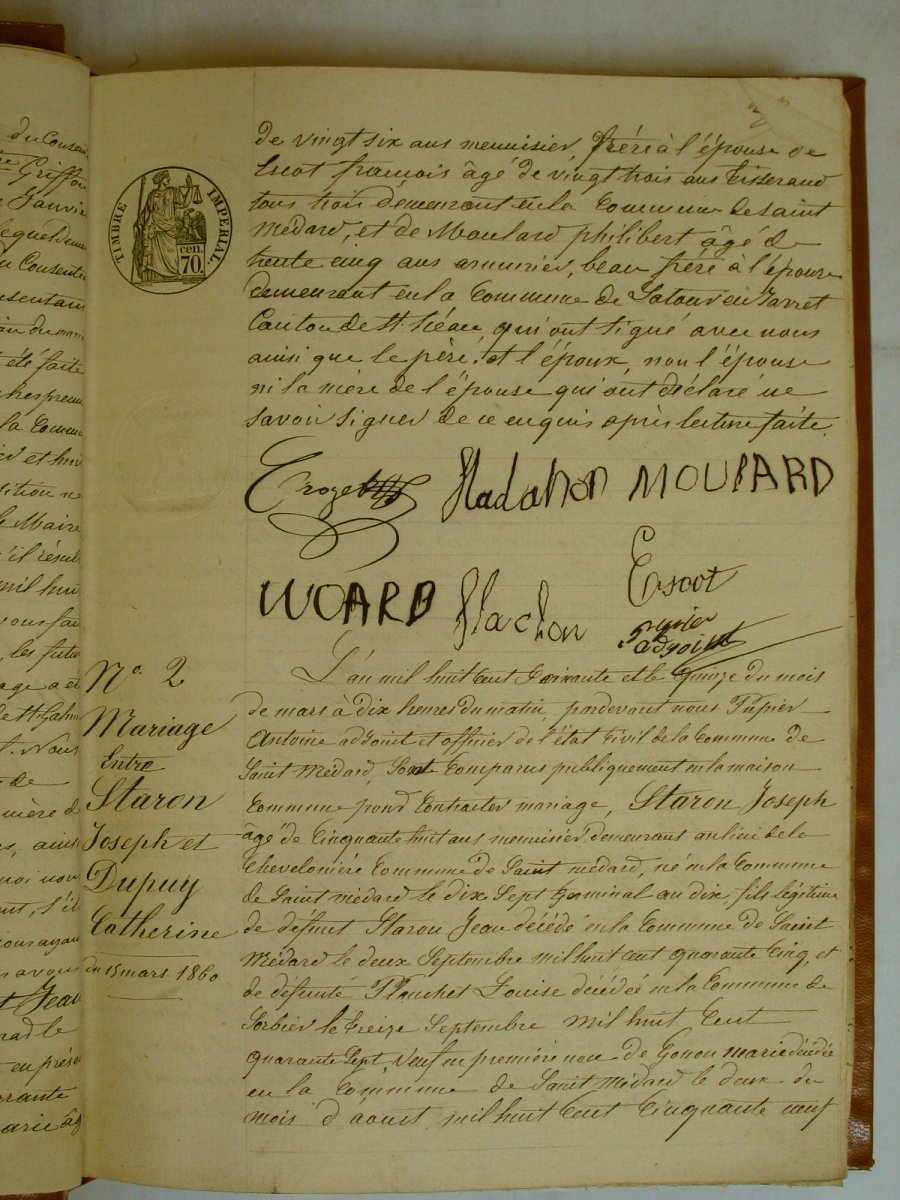 de vingt six ans menuisier frère à l'épouse de
Escot francois âgé de vingt trois ans tisserand
tous trois demeurant en la Commune de Saint
Médard, et de Moulard philibert âgé de
trente cinq ans armurier, beau frère à l'épouse
demeurant en la Commune de Latour en Jarret
Canton de St héand qui ont signé avec nous
ainsi que le père et l'époux, non l'épouse
ni la mère de l'épouse qui ont déclaré ne
savoir signer de ce enquis après lecture faite.
TIMBRE IMPERIAL
cen.
70.
Crozet
MOULARD
Flachon
Escot
adjoint
N°. 2
Mariage
Entre
Staron
Joseph et
Dupuy
Catherine
du 15 mars 1860
L'an mil huit cent Soixante et le quinze du mois
de mars à dix heures du matin, pardevant nous Pupier
Antoine adjoint et officier de l'état Civil de la Commune de
Saint Médard, Sont Comparus publiquement en la maison
Commune pour Contracter mariage, Staron Joseph
âgé de Cinquante huit ans menuisier demeurant au lieu de la
Commune de Saint médard, né en la Commune
de Saint médard le dix Sept Germinal an dix, fils légitime
de défunt Staron Jean décédé en la Commune de Saint
Médard le deux Septembre mil huit cent quarante Cinq, et
de défunte Planchet Louise décédée en la Commune de
Sorbier le treize Septembre mil huit Cent
quarante Sept, Veuf en première noce de Gonon marie décédée
en la Commune de Saint Médard le deux du
mois d'aoust mil huit Cent Cinquante neuf